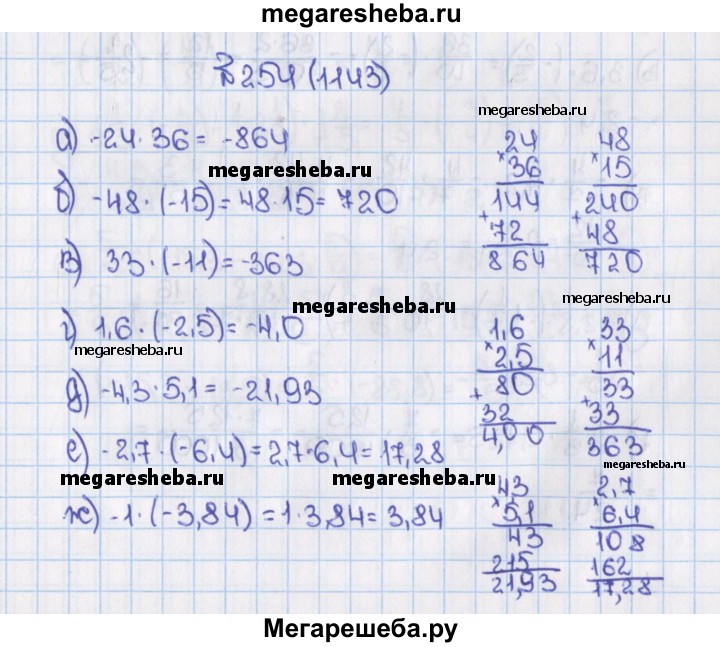 megaresheba.ru
№254(1143)
megaresheba.ru
а) -24·36= -864
megaresheba.ru
б) -48·(-15)=48·15=720
в) 33·(-11)=-363
megaresheba.ru
г) 1,6·(-2,5)=-4,0
megaresheba.ru
д) -4,3·5,1= -21,93
е) -2,7·(-6,4)=2,7·6,4=17,28
megaresheba.ru
ж) -1·(-3,84)=1·3,84=3,84
24
×36
144
+
72
864
48
×15
240
+
48
720
megaresheba.ru
1,6
×2,5
+ 80
32
4,00
33
×11
33
+
33
363
megaresheba.ru
megaresheba.ru
43
×5,1
43
215
21,93
2,7
×6,4
108
162
17,28
Мегарешеба.ру